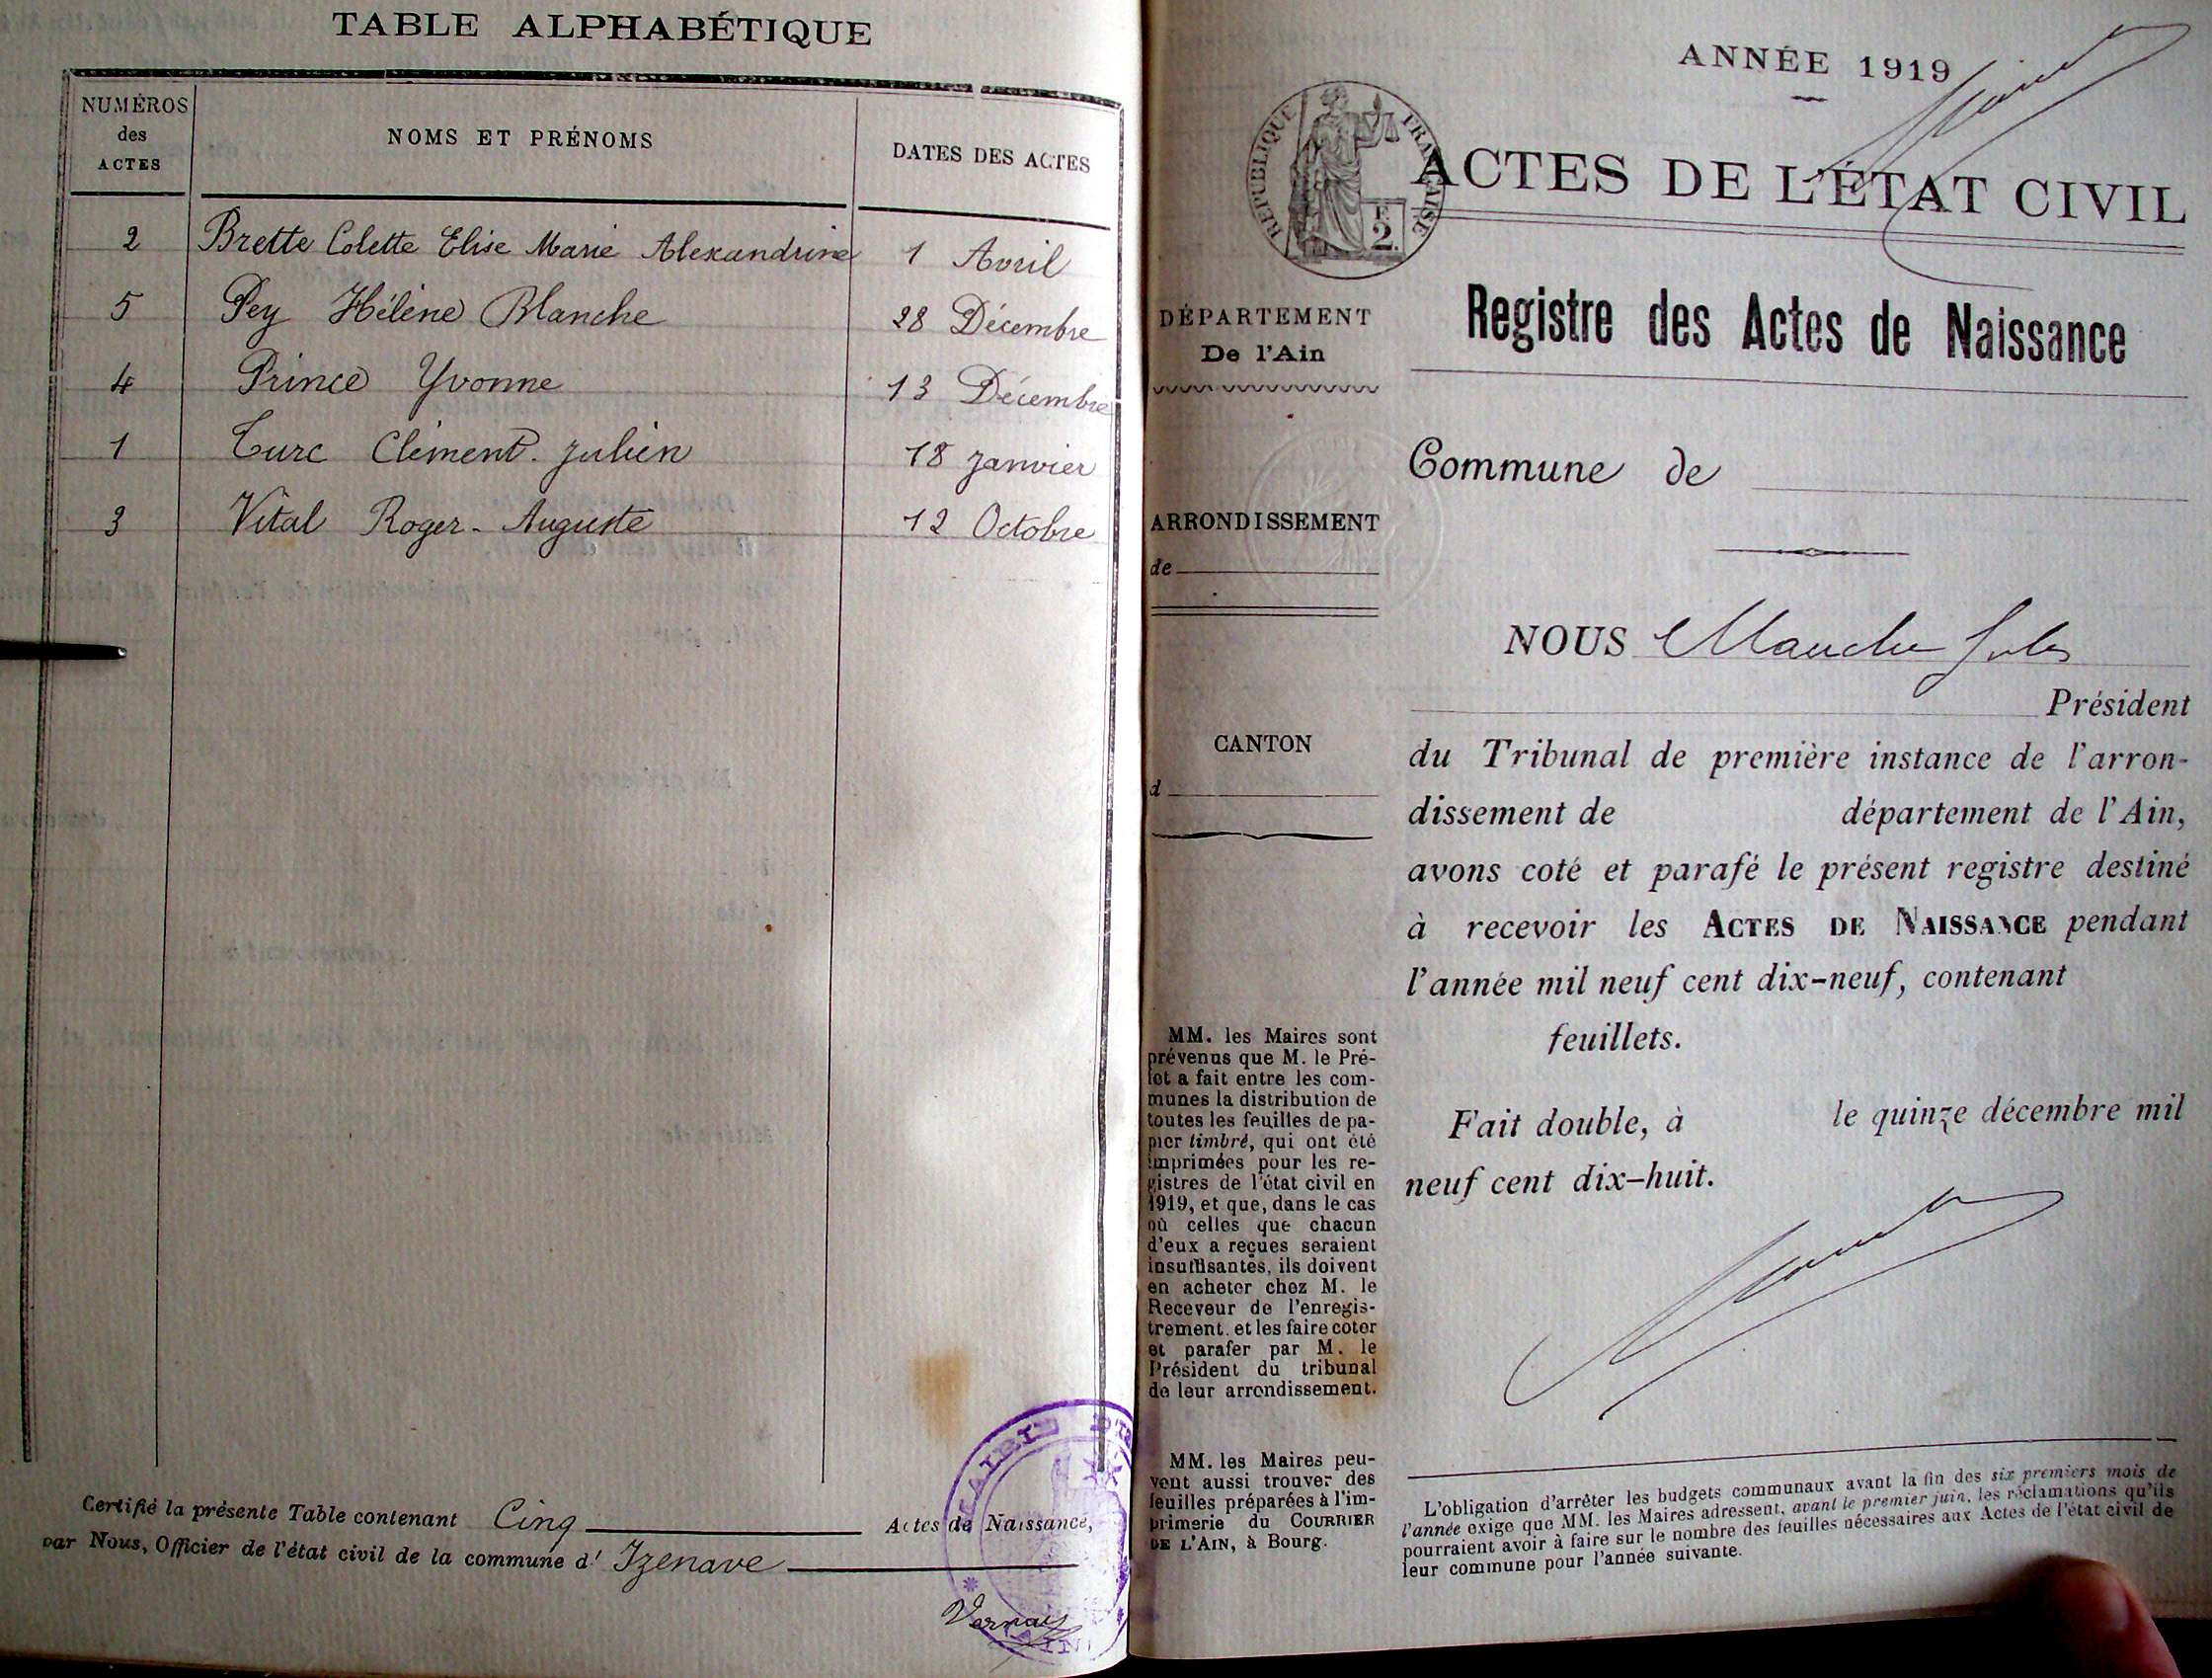 TABLE ALPHABÉTIQUE
NUMÉROS
des
ACTES
NOMS ET PRÉNOMS
DATES DES ACTES
2 Brette Colette Elise Marie Alexandrine 1 Avril
5 Pey Hélène Blanche 28 Décembre
4 Prince Yvonne 13 Décembre
1 Turc Clément. Julien 18 Janvier
3 Vital Roger-Auguste 12 Octobre
Certifié la présente Table contenant Cinq Actes de Naissance,
par Nous, Officier de l'état civil de la commune d' Izenave
MAIRIE
AIN
Vernay
ANNÉE 1919
RÉPUBLIQUE FRANÇAISE
F.
2.
ACTES DE L'ÉTAT CIVIL
Registre des Actes de Naissance
DÉPARTEMENT
De l'Ain
Commune de
ARRONDISSEMENT
de
CANTON
d
NOUS Jules
Président
du Tribunal de première instance de l'arron-
dissement de département de l'Ain,
avons coté et parafé le présent registre destiné
à recevoir les ACTES DE NAISSANCE pendant
l'année mil neuf cent dix-neuf, contenant
feuillets.
Fait double, à le quinze décembre mil
neuf cent dix-huit.
MM. les Maires sont
prévenus que M. le Pré-
fet a fait entre les com-
munes la distribution de
toutes les feuilles de pa-
pier timbré, qui ont été
imprimées pour les re-
gistres de l'état civil en
1919, et que, dans le cas
où celles que chacun
d'eux a reçues seraient
insuffisantes, ils doivent
en acheter chez M. le
Receveur de l'enregis-
trement. et les faire coter
et parafer par M. le
Président du tribunal
de leur arrondissement.
MM. les Maires peu-
vent aussi trouver des
feuilles préparées à l'im-
primerie du COURRIER
DE L'AIN, à Bourg.
L'obligation d'arrêter les budgets communaux avant la fin des six premiers mois de
l'année exige que MM. les Maires adressent, avant le premier juin, les réclamations qu'ils
pourraient avoir à faire sur le nombre des feuilles nécessaires aux Actes de l'état civil de
leur commune pour l'année suivante.